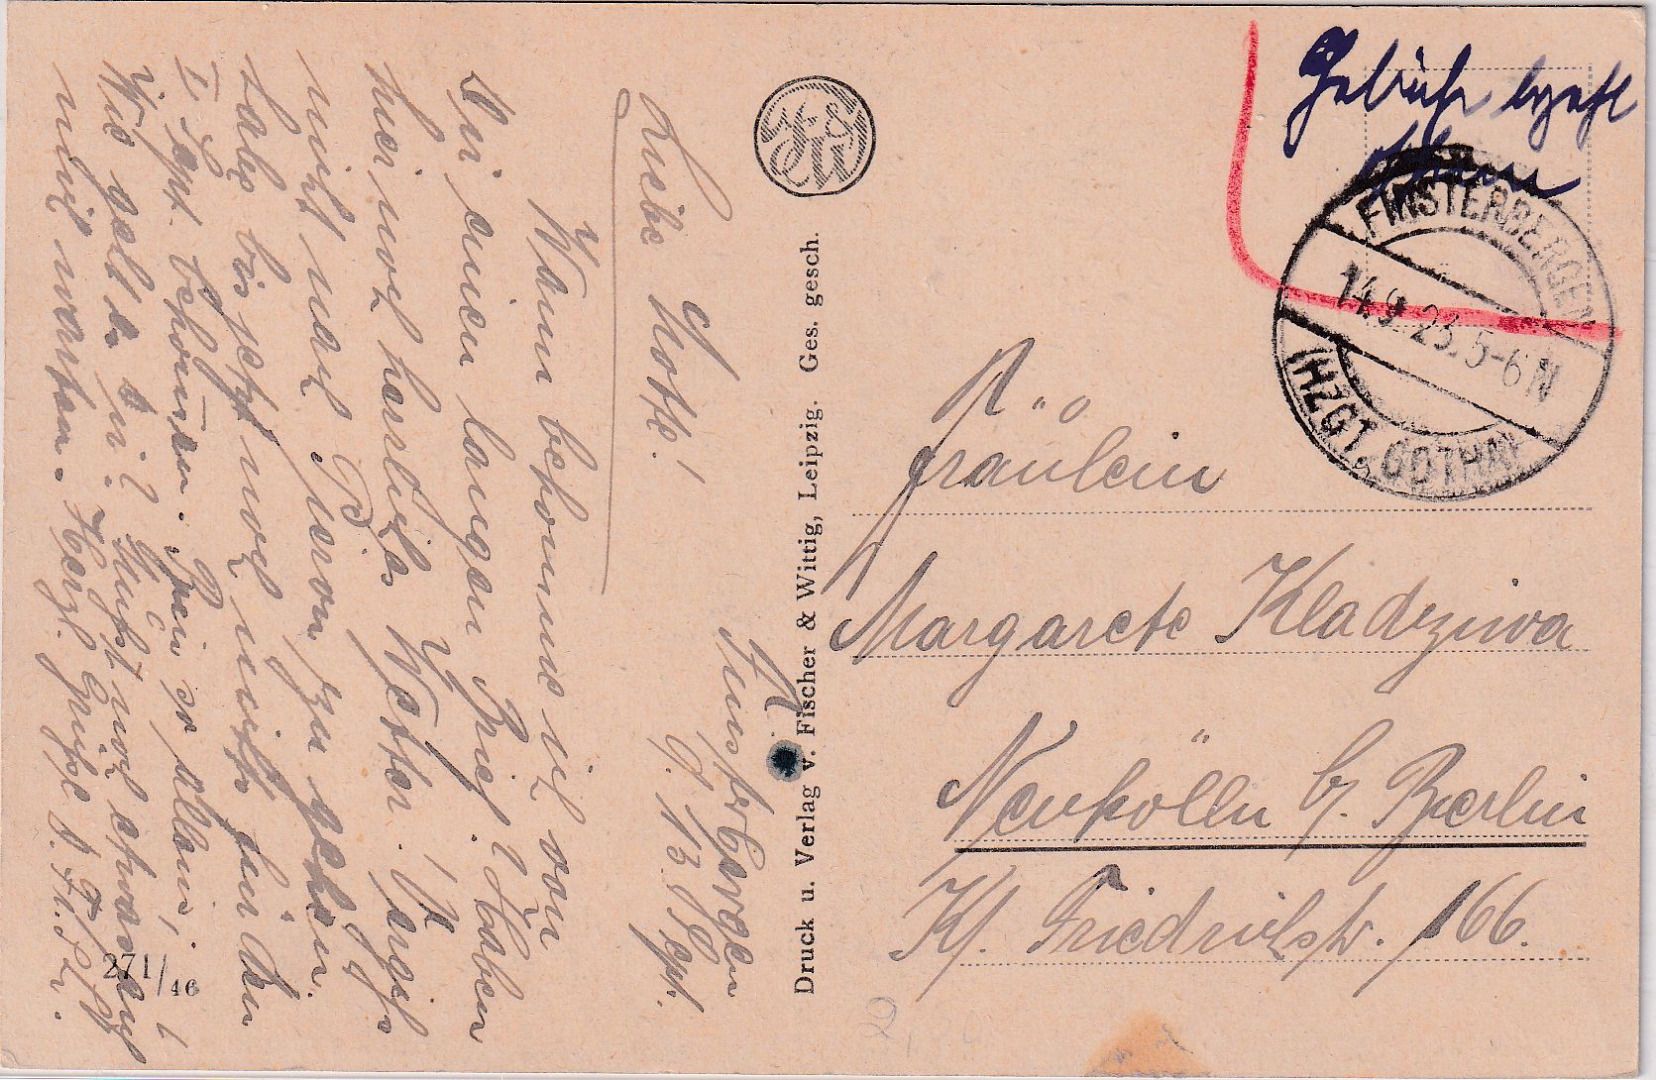 Gebühr bezahlt
FINSTERBERGEN
14.9.23.5-6N
(HZGT. GOTHA)
Fräulein
Margarete Kladziwa
Neukölln b/ Berlin
Ks. Friedrichstr. 166.
Druck u. Verlag v. Fischer & Wittig, Leipzig. Ges. gesch.
F & W
Finsterbergen
d. 13. Sept.
Liebe Lotte!
Wann bekomme ich von
Dir einen langen Brief? Haben
hier noch herrliches Wetter.
nicht nach zu gehen.
Habe bis jetzt noch nicht
bekommen. Bin so allein,
Wie geht es Dir? Mußt noch etwas auf
mich warten. Herzl. Grüße
271/46